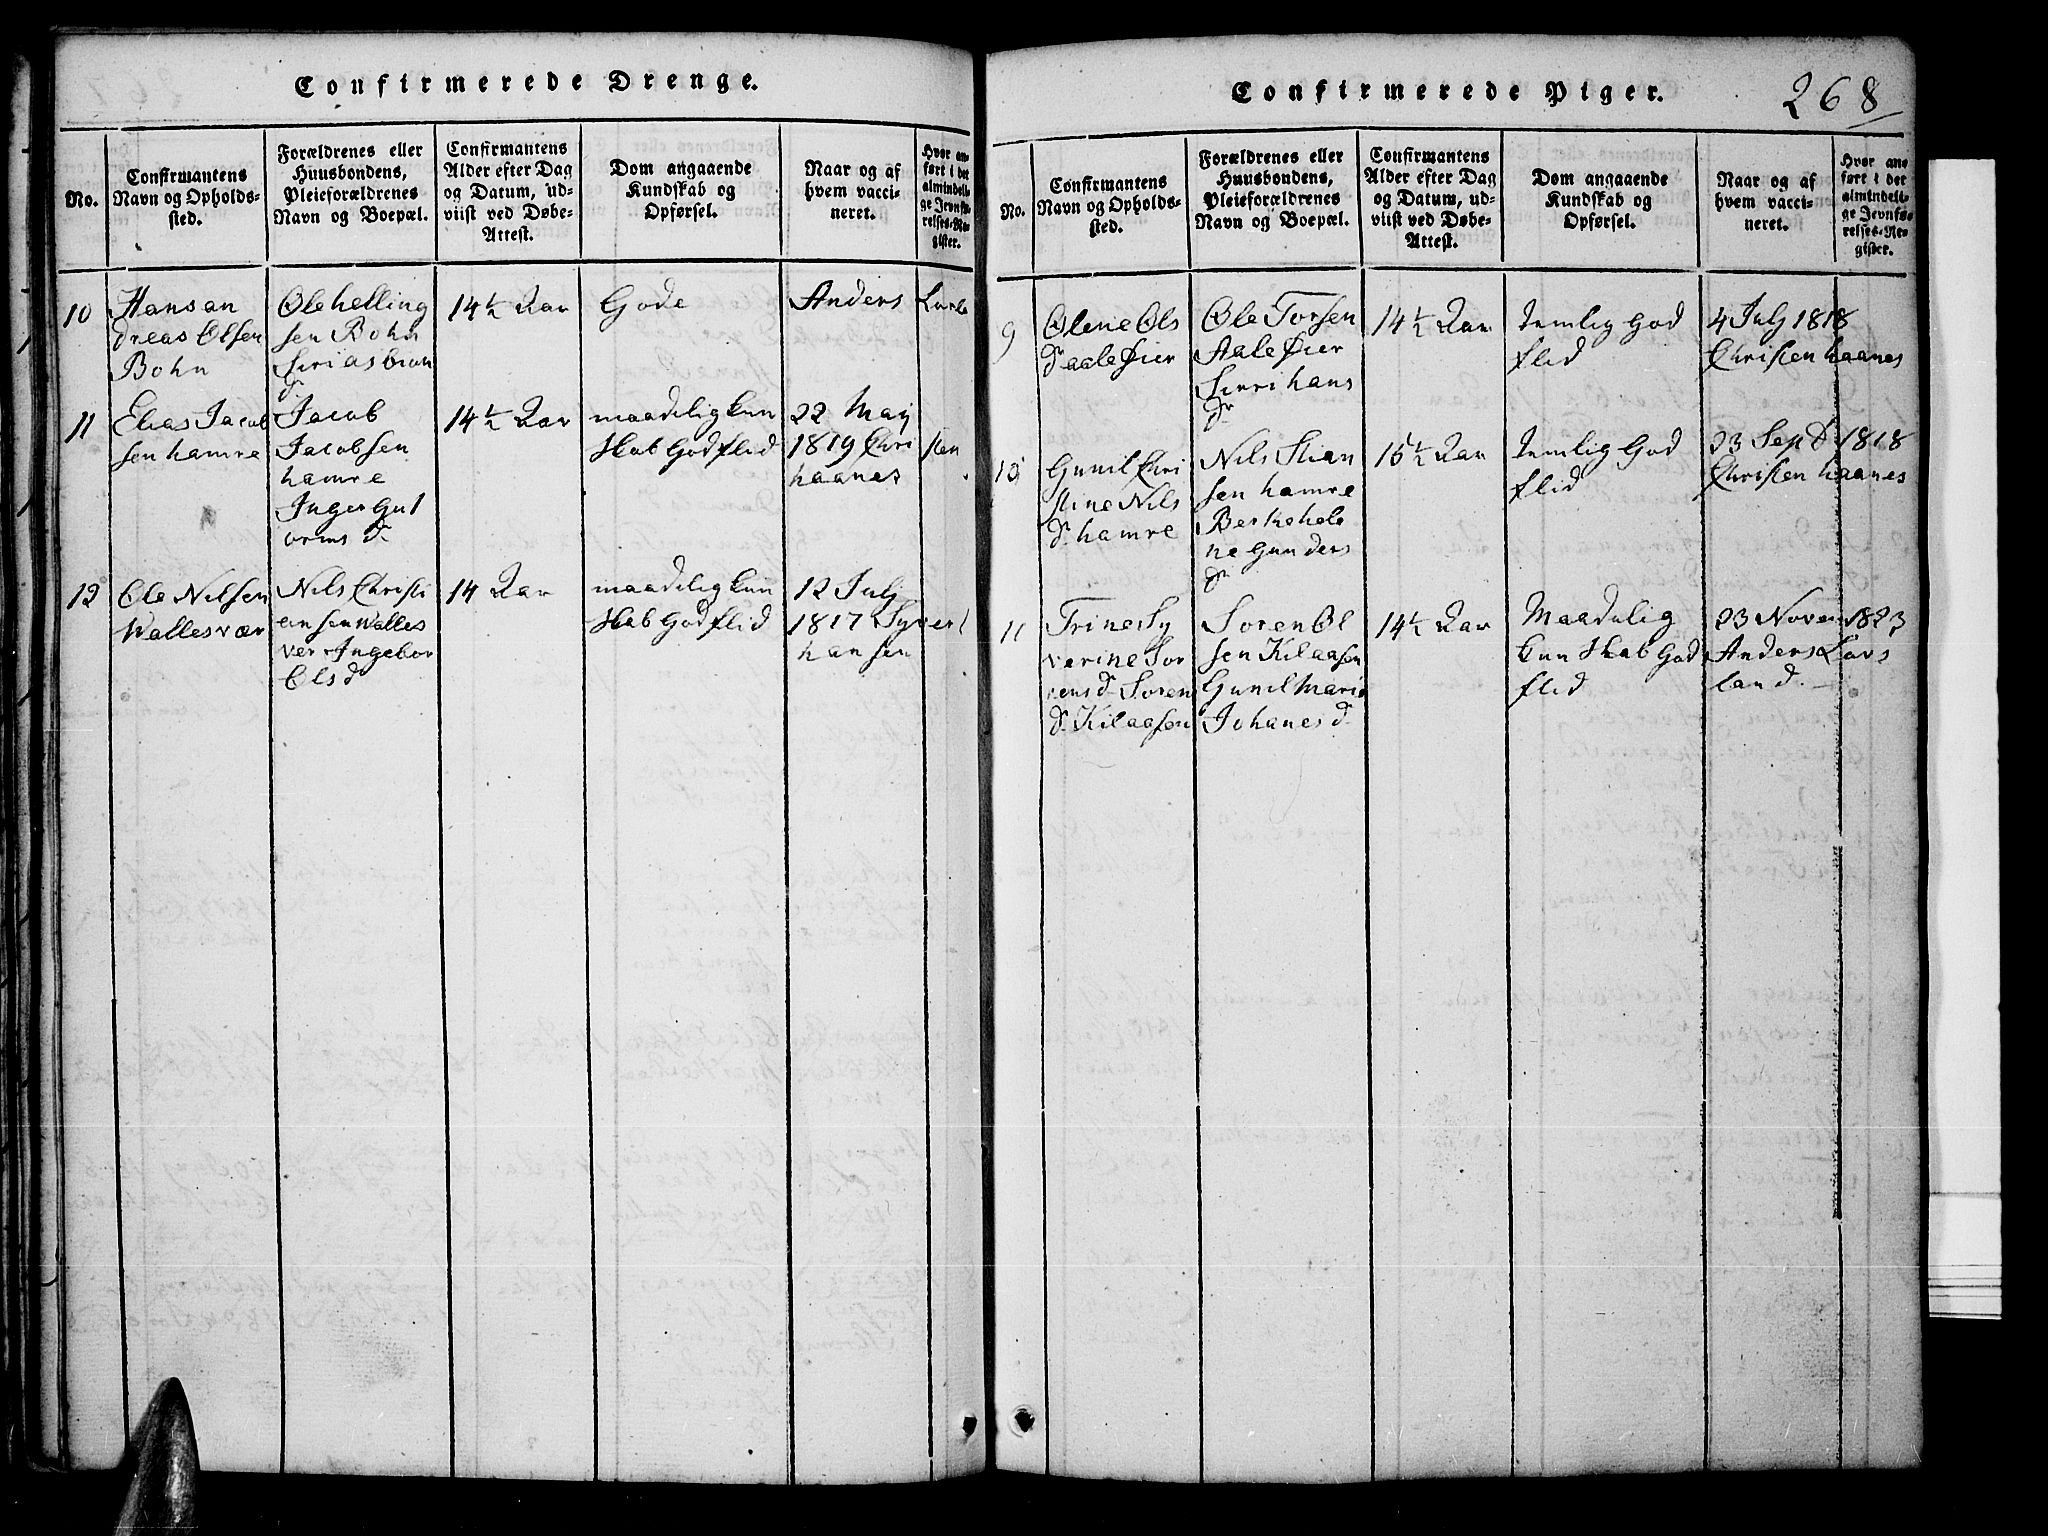 Confirmerede Drenge.
No.
Confirmantens
Navn og Opholds-
sted.
Forældrenes eller
Huusbondens,
Pleieforældrenes
Navn og Boepæl.
Confirmantens
Alder efter Dag
og Datum, ud-
viist ved Døbe-
Attest.
Dom angaaende
Kundskab og
Opførsel.
Naar og af
hvem vacci-
neret.
Hvor an-
ført i det
almindeli-
ge Jevnfø-
relses-Re-
gister.
10
Hans an
dreas Olsen
Bohn
Ole helling
sen Bohn
14 ½ Aar
Gode
Anders
11
Elias Jacob
sen hamre
Jacob
Jacobsen
hamre
Inger Gut
orms d
14 ½ Aar
maadelig kun
skab God flid
22 Maij
1819 Chri sten
haanes
12
Ole Nilsen
Wallesvær
Nils Christi
ansen Walles
ver Ingebor
Ols d
14 Aar
maadelig kun
skab God flid
12 Julj
1817 Syvert
hansen
Confirmerede Piger.
268
No.
Confirmantens
Navn og Opholds-
sted.
Forældrenes eller
Huusbondens,
Pleieforældrenes
Navn og Boepæl.
Confirmantens
Alder efter Dag
og Datum, ud-
viist ved Døbe-
Attest.
Dom angaaende
Kundskab og
Opførsel.
Naar og af
hvem vacci-
neret.
Hvor an-
ført i det
almindeli-
ge Jevnfø-
relses-Re-
gister.
9
Olene Ols
dr aaleøier
Ole Torsen
Aaleøier
Sirri hans
dr
14 ½ Aar
temlig God
flid
4 Julj 1818
Christen haanes
10
Gunil Chri
stine Nils
dr hamre
Nils Stian
sen hamre
Berthe hele
ne Gunders
dr
15 ½ Aar
temlig God
flid
23 Sept 1818
Christen haanes
11
Trine Sy
verine Sor
rens d Soren
dr Kilaasen
Soren Ol
sen Kilaasen
Gunil Marie
Johanes d
14 ½ Aar
Maadelig
kunskab God
flid
23 Novem 1823
Anders Lavs
land.